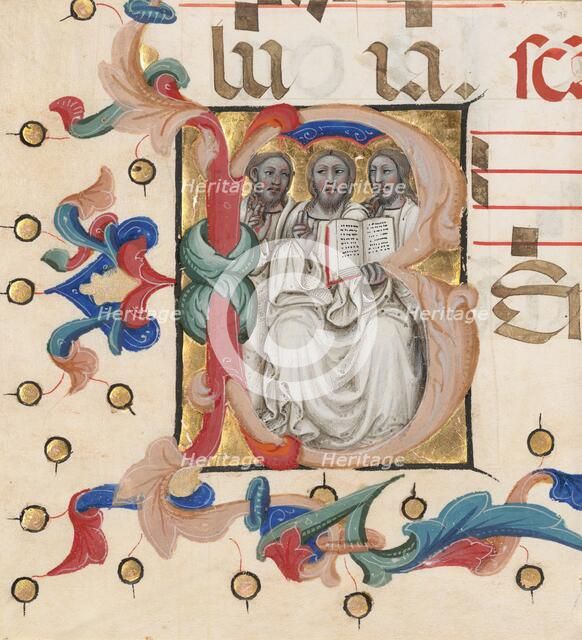 lu ia. sc
Heritage Heritage
B
Heritage Heritage
Heritage Heritage